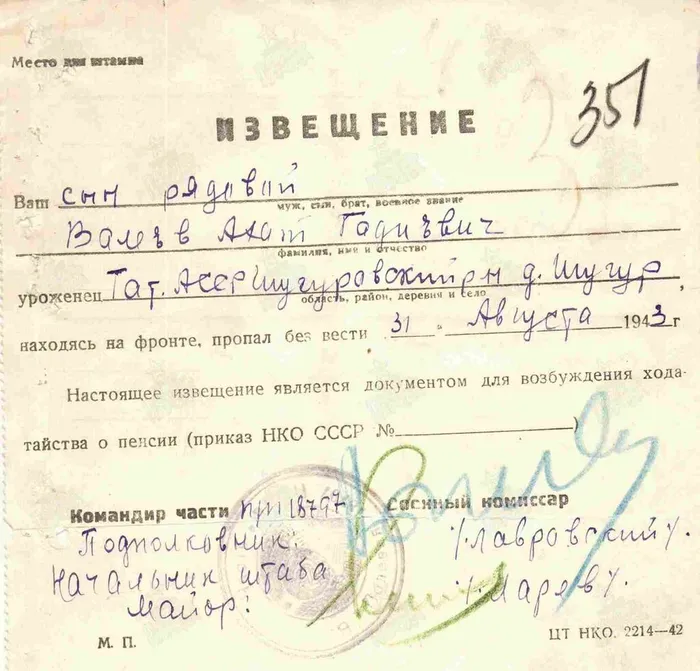 Место для штампа
351
ИЗВЕЩЕНИЕ
Ваш сын рядовой
муж, сын, брат, военное звание
Валеъв Ахат Гадиъвич
фамилия, имя и отчество
уроженец Тат.АССР Шугуровский рн д. Шугур
область, район, деревня и село
находясь на фронте, пропал без вести 31 Августа 1943 г
Настоящее извещение является документом для возбуждения хода-
тайства о пенсии (приказ НКО СССР № )
Командир части ппп 18797 Военный комиссар
Подполковник: /Лавровский/.
Начальник штаба
Майор: /Царев/.
М. П. ЦТ НКО. 2214—42